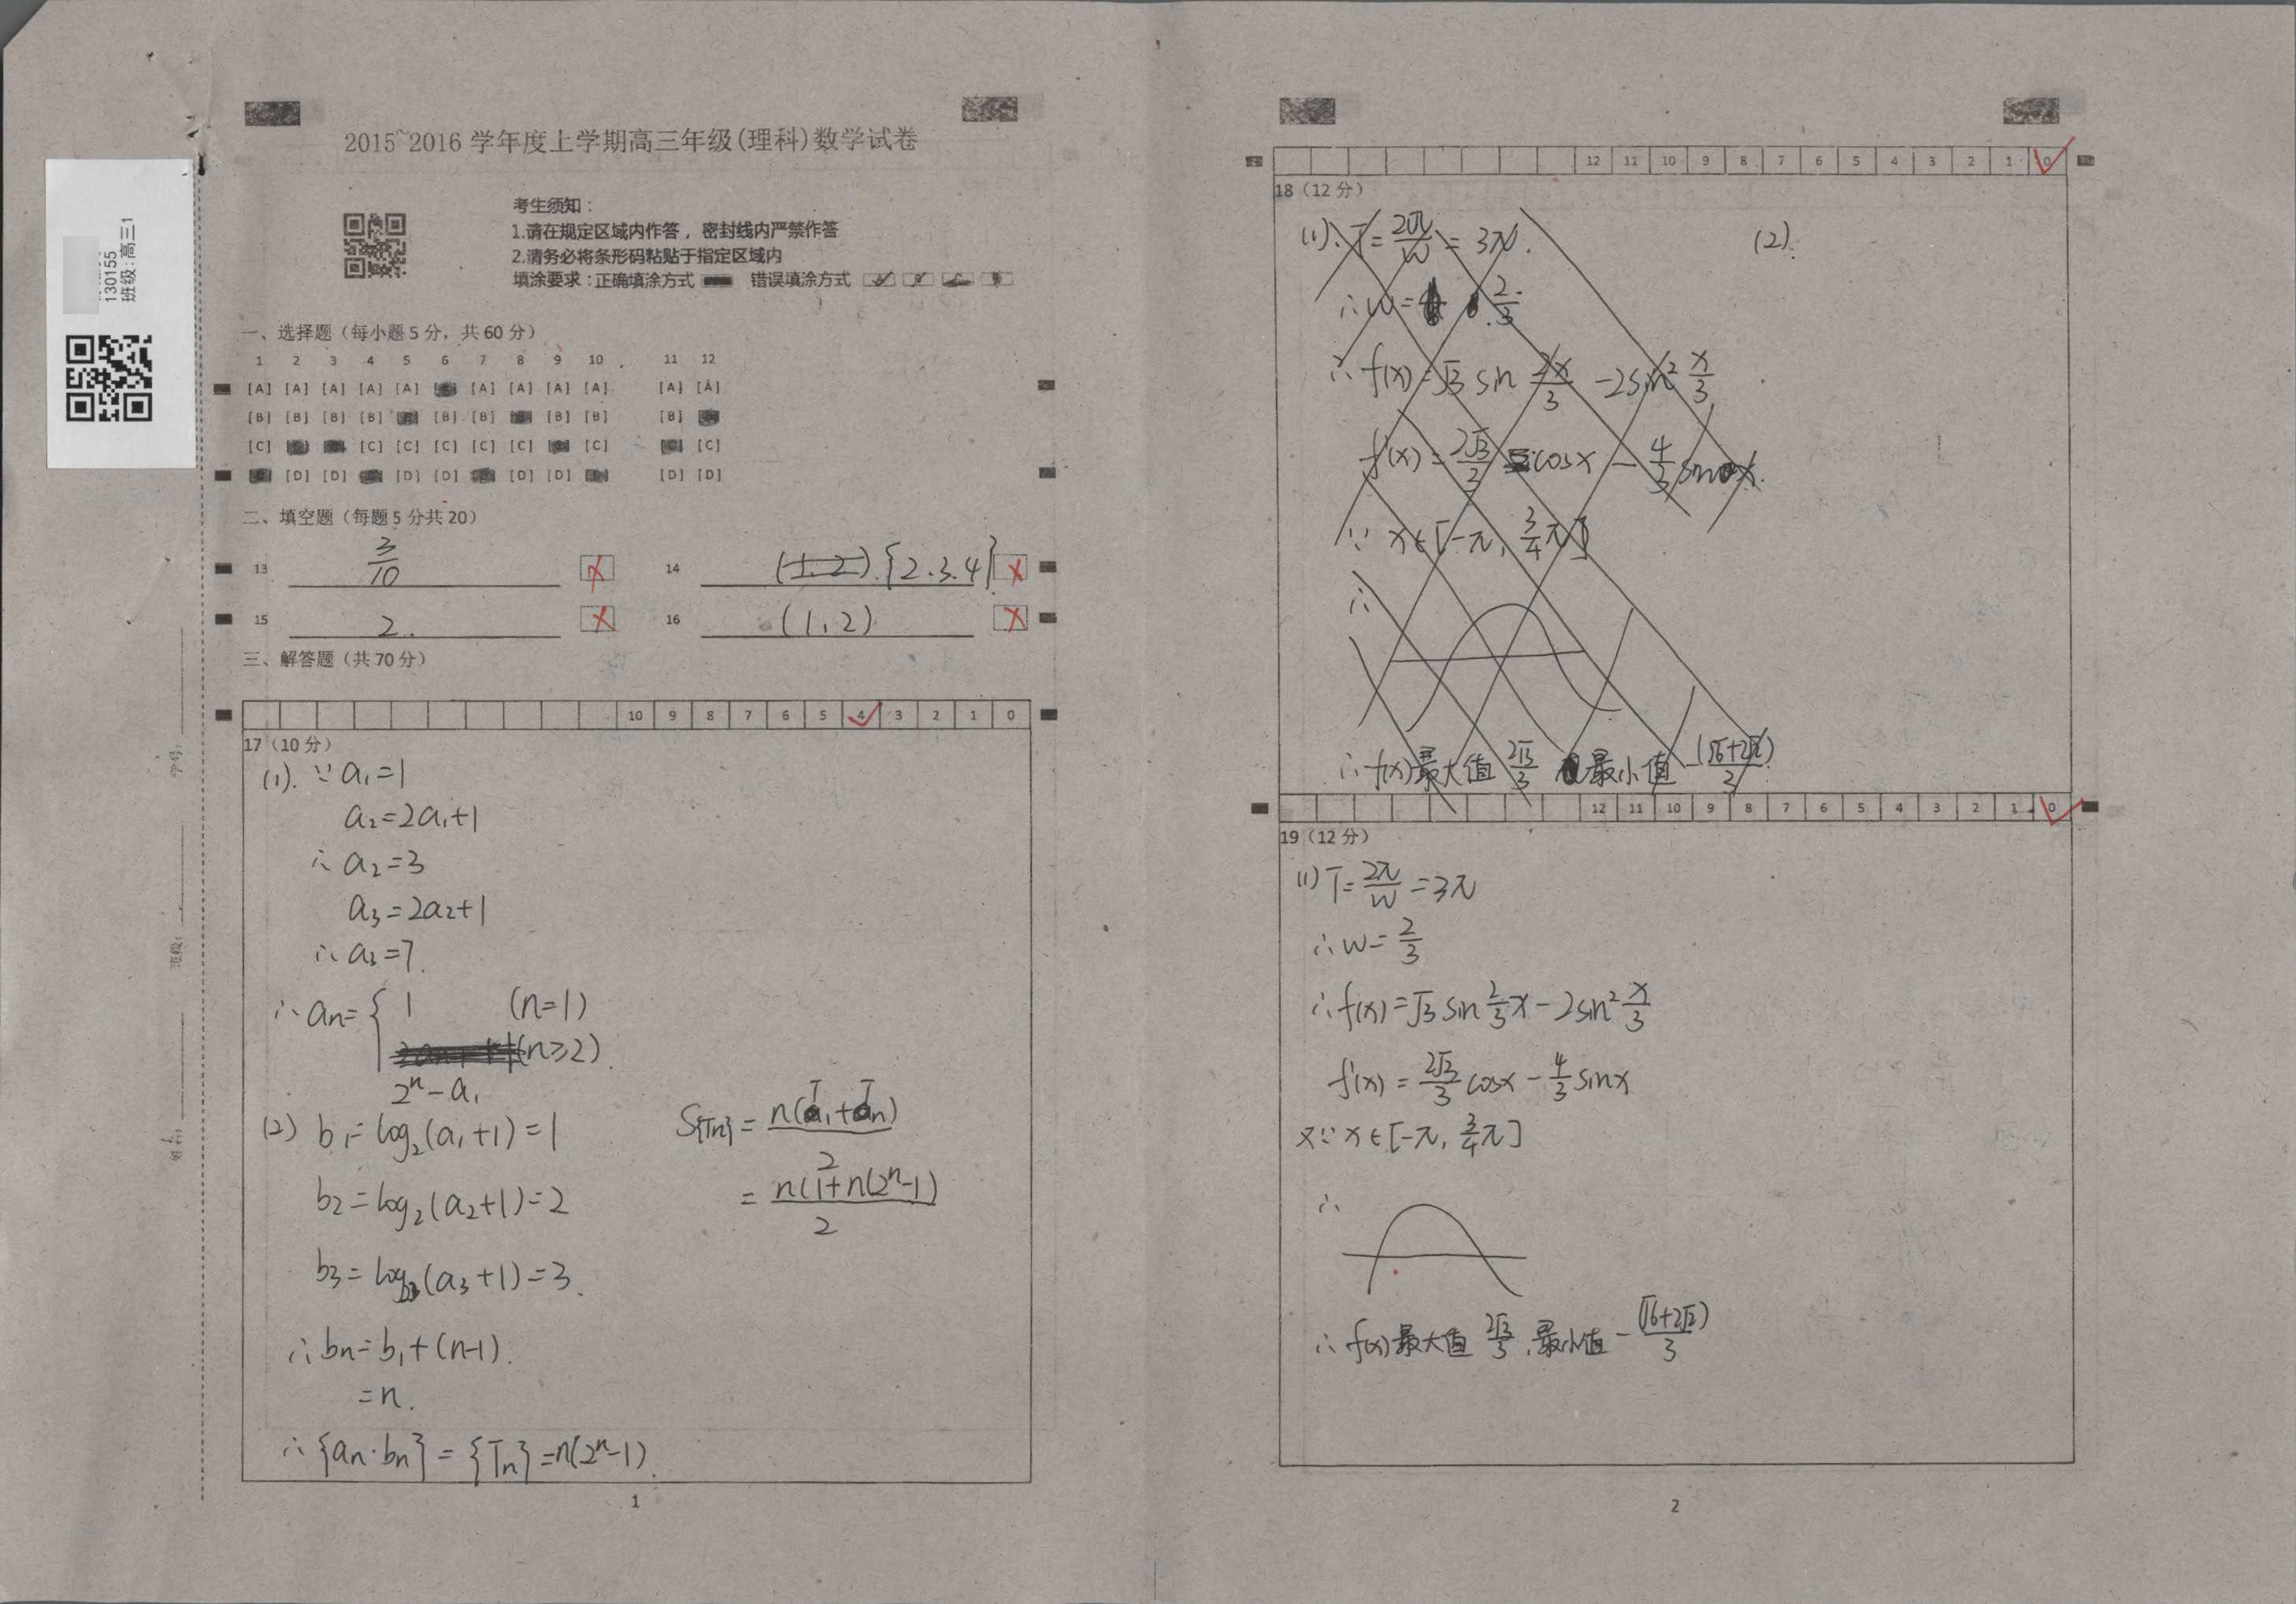 2015~2016 学年度上学期高三年级(理科)数学试卷
130155
班级:高三1
考生须知：
1.请在规定区域内作答，密封线内严禁作答
2.请务必将条形码粘贴于指定区域内
填涂要求：正确填涂方式 错误填涂方式
一、选择题（每小题 5 分，共 60 分）
1 2 3 4 5 6 7 8 9 10 11 12
[A] [A] [A] [A] [A] [A] [A] [A] [A] [A] [A]
[B] [B] [B] [B] [B] [B] [B] [B] [B]
[C] [C] [C] [C] [C] [C] [C] [C]
[D] [D] [D] [D] [D] [D] [D] [D]
二、填空题（每题 5 分共 20）
13 3/10 14 (1.2).{2.3.4}
15 2. 16 (1,2)
三、解答题（共 70 分）
10 9 8 7 6 5 4 3 2 1 0
17（10 分）
(1). ∵ a₁=1
a₂=2a₁+1
∴ a₂=3
a₃=2a₂+1
∴ a₃=7.
∴ an={ 1 (n=1)
(n≥2).
2ⁿ-a₁
(2) b₁=log₂(a₁+1)=1
b₂=log₂(a₂+1)=2
b₃=log₂(a₃+1)=3.
∴ bn=b₁+(n-1).
=n.
∴ {an·bn} = {Tn} =n(2ⁿ-1).
S{Tn} = n(T₁+Tn)/2
= n(1+n(2ⁿ-1)/2
1
学号:
班级:
姓名:
12 11 10 9 8 7 6 5 4 3 2 1 0
18（12 分）
(1). T=2π/w=3π.
∴w= 2/3
∴ f(x)=√3 sin 2x/3 -2sin² x/3
f'(x)=2√3/3 cosx - 4/3 sinx.
∵ x∈[-π, 3/4π]
∴
∴ f(x)最大值 2√3/3 最小值 -(√6+2√2)/3
(2).
12 11 10 9 8 7 6 5 4 3 2 1 0
19（12 分）
(1) T=2π/w=3π
∴w=2/3
∴f(x)=√3 sin 2/3 x-2sin² x/3
f'(x)=2√3/3 cosx-4/3 sinx
又∵ x∈[-π, 3/4π]
∴
∴ f(x)最大值 2√3/3 ,最小值 -(√6+2√2)/3
2